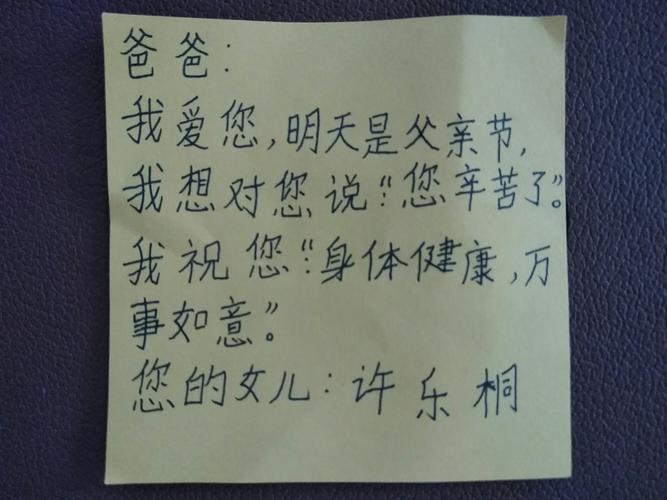 爸爸：
我爱您，明天是父亲节，
我想对您说“您辛苦了”。
我祝您“身体健康，万
事如意”。
您的女儿：许乐桐